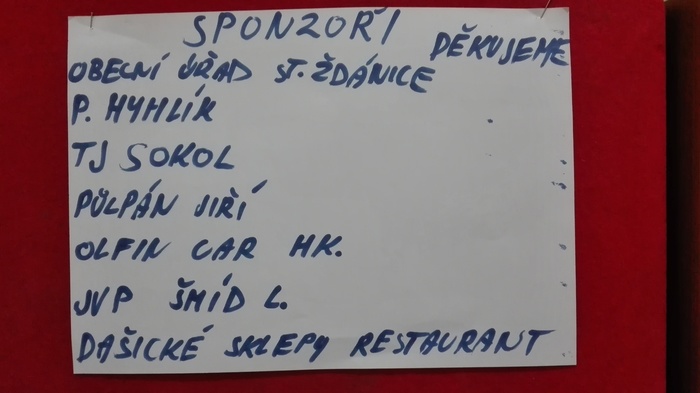 SPONZOŘI
DĚKUJEME
OBECNÍ ÚŘAD ST. ŽDÁNICE
P. HYHLÍK
TJ SOKOL
PŮLPÁN JIŘÍ
OLFIN CAR HK.
JVP ŠMÍD L.
DAŠICKÉ SKLEPY RESTAURANT